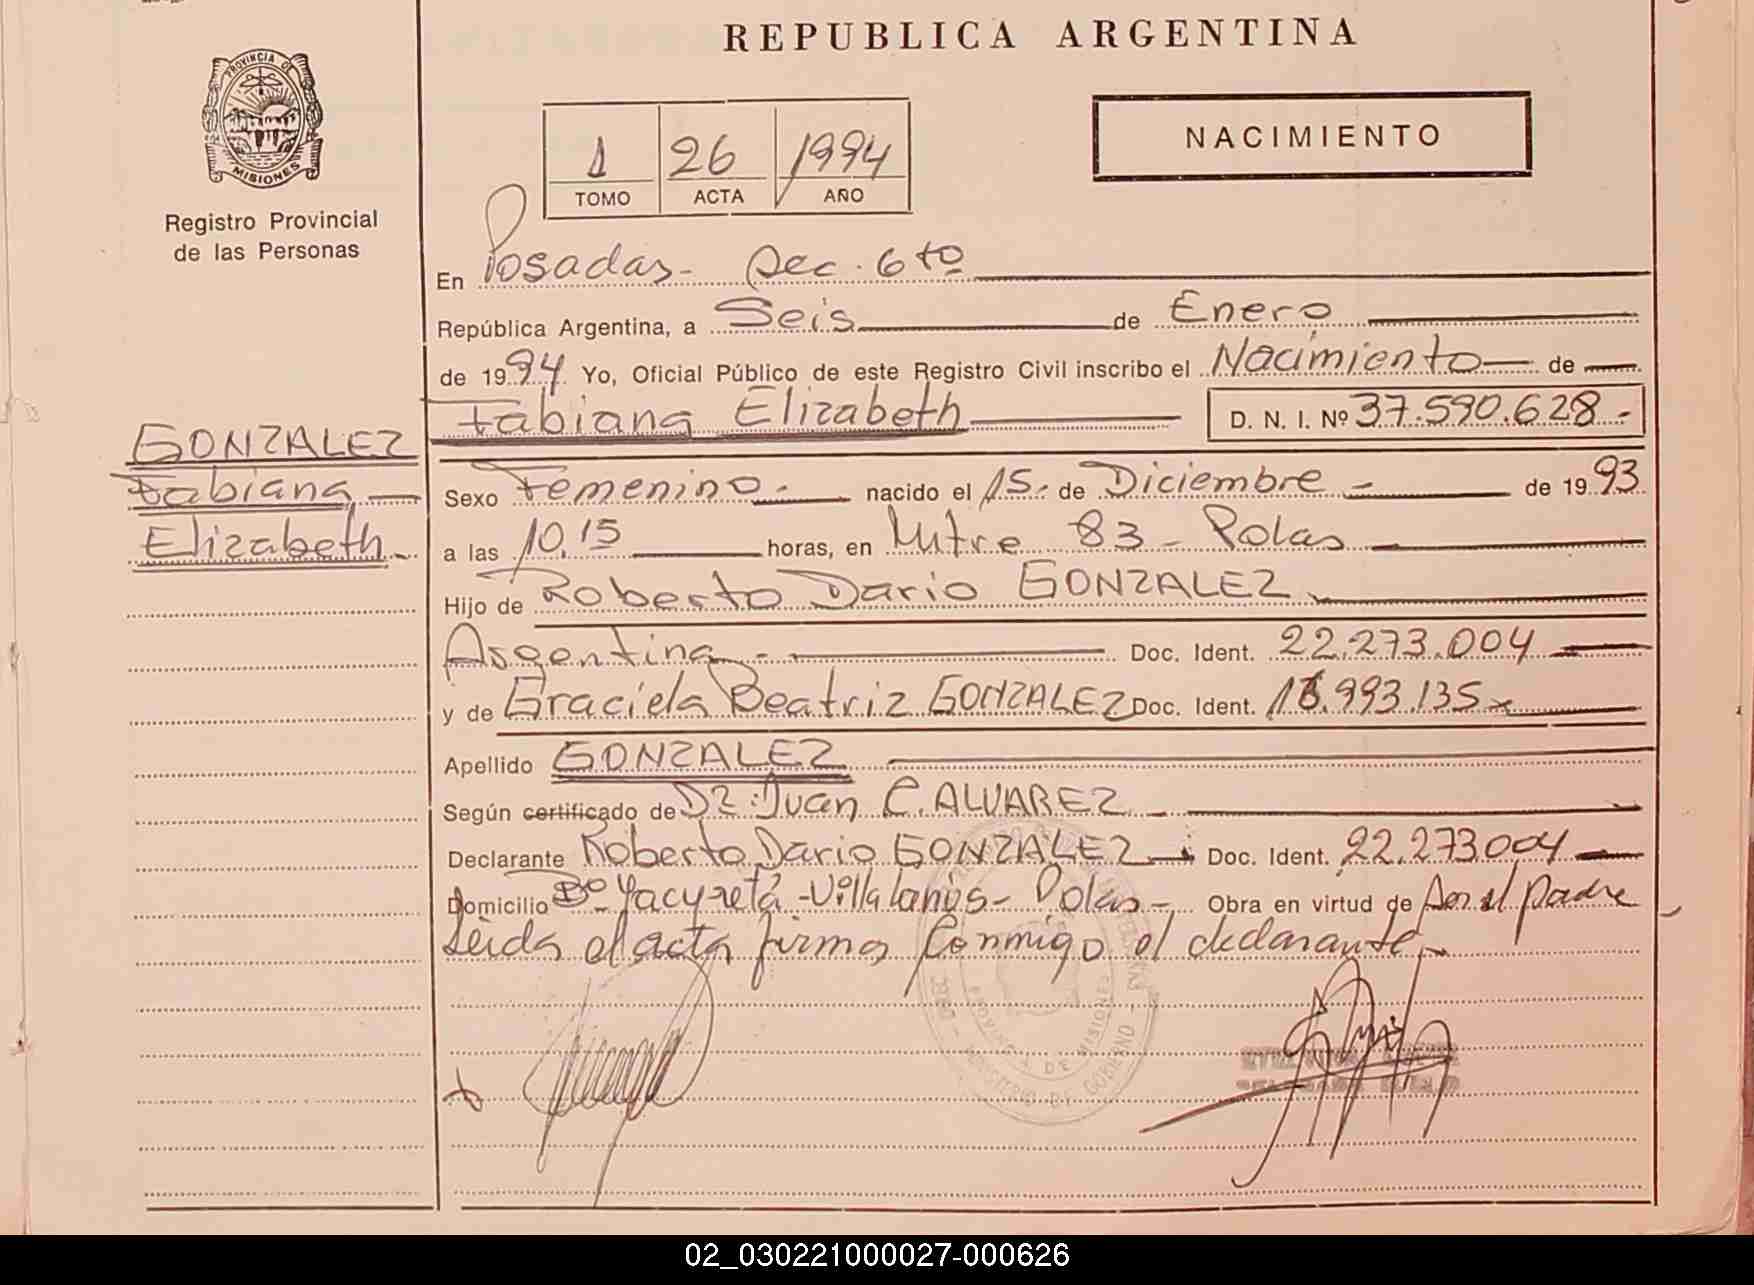 REPUBLICA ARGENTINA
PROVINCIA DE
MISIONES
Registro Provincial
de las Personas
1 26 1994
TOMO ACTA AÑO
NACIMIENTO
En Posadas - Sec. 6to
República Argentina, a Seis de Enero
de 1994 Yo, Oficial Público de este Registro Civil inscribo el Nacimiento de
Fabiana Elizabeth D. N. I. Nº 37.590.628.-
GONZALEZ
Fabiana
Elizabeth
Sexo Femenino.- nacido el 15.- de Diciembre - de 1993
a las 10,15 horas, en Mitre 83 - Pdas
Hijo de Roberto Dario GONZALEZ
Argentina - Doc. Ident. 22.273.004
y de Graciela Beatriz GONZALEZ Doc. Ident. 16.993.135
Apellido GONZALEZ
Según certificado de Dr. Juan C. ALVAREZ
Declarante Roberto Dario GONZALEZ Doc. Ident. 22.273004
Domicilio Bº Yacyretá - Villalanús - Pdas - Obra en virtud de Ser el padre
Leida el acta firma conmigo el declarante
PROVINCIA DE MISIONES
MINISTERIO DE GOBIERNO
02_030221000027-000626